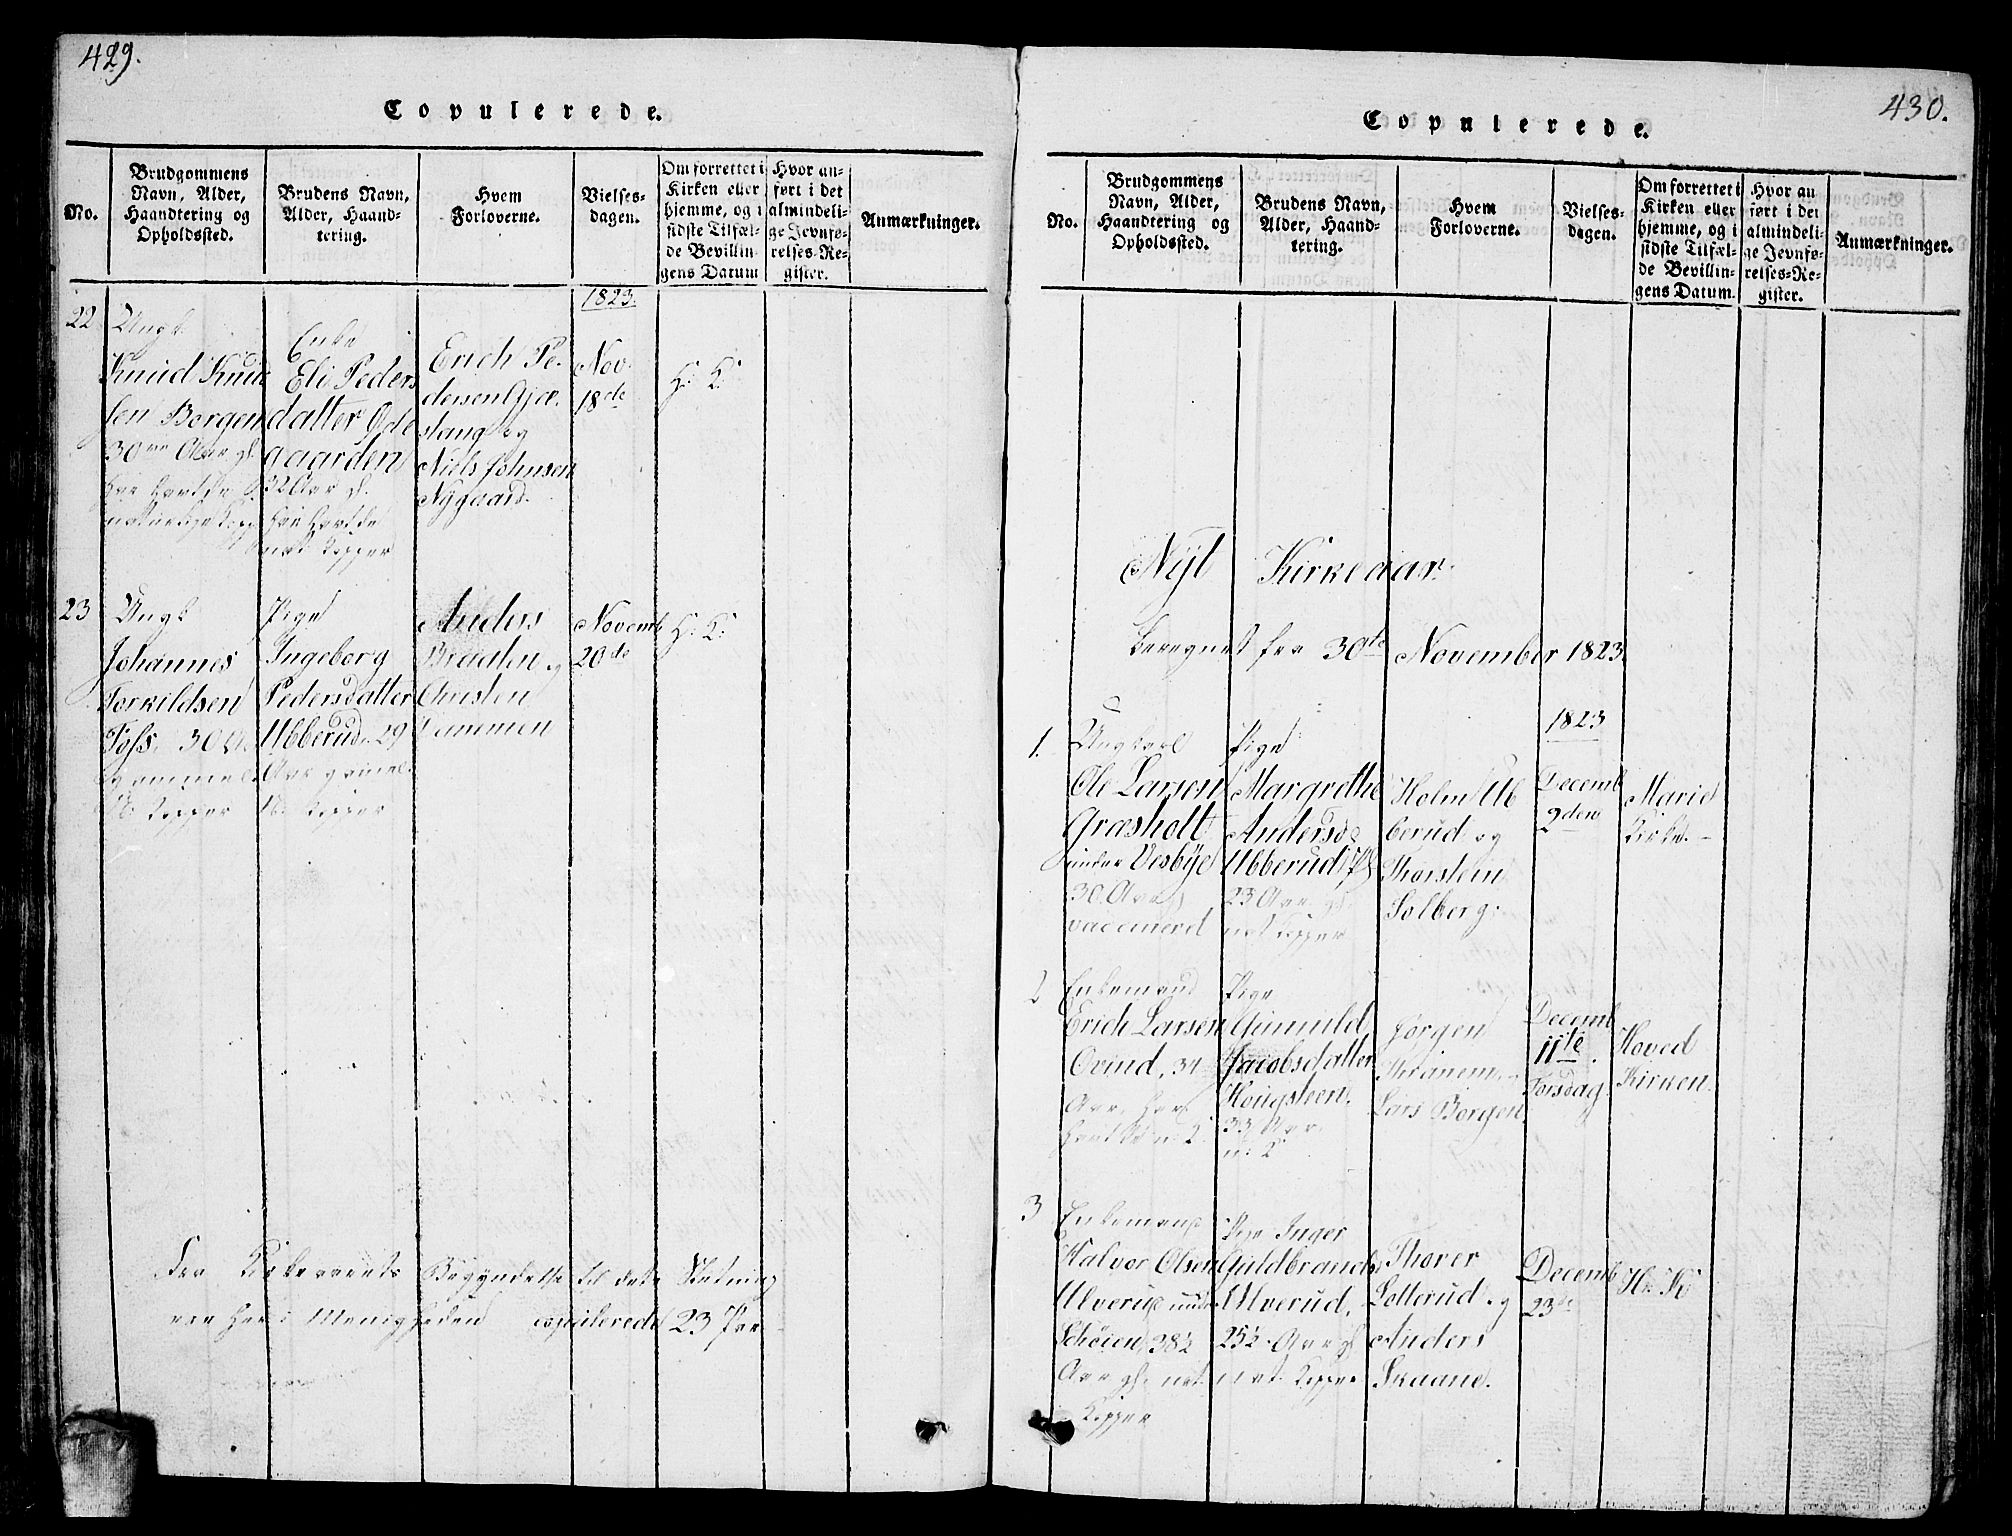 429.
Copulerede.
No.
Brudgommens
Navn, Alder,
Haandtering og
Opholdssted.
Brudens Navn,
Alder, Haand-
tering.
Hvem
Forloverne.
Vielses-
dagen.
Om forrettet i
Kirken eller
hjemme, og i
sidste Tilfæl-
de Bevillin-
gens Datum
Hvor an-
ført i det
almindeli-
ge Jevnfø-
relses-Re-
gister.
Anmærkninger.
1823.
22
Ungk
Knud Knud
sen Borgen
30 Aar gl.
har havt de
naturlige Kopp
Enke
Eli Peders
datter Øde
gaarden
32 Aar gl.
har havt de
nat. Kopper
Erich Pe-
dersen
stang og
Niels Johnsen
Nygaard.
Nov.
18de
H. K.
23
Ungk
Johannes
Torkildsen
Foss. 30 A.
gammel.
N. Kopper
Pige
Ingeborg
Pedersdatter
Ubberud. 29
Aar gamel.
N. Kopper
Anders
Braaten og
Christen
Novemb
20de
H. K.
Fra Kirkeaarets Begyndelse til dets Slutning
ere her i Menigheden copulerede 23 Par
430.
Copulerede.
No.
Brudgommens
Navn, Alder,
Haandtering og
Opholdssted.
Brudens Navn,
Alder, Haand-
tering.
Hvem
Forloverne.
Vielses-
dagen.
Om forrettet i
Kirken eller
hjemme, og i
sidste Tilfæl-
de Bevillin-
gens Datum.
Hvor an
ført i det
almindeli-
ge Jevnfø-
relses-Re-
gister.
Anmærkninger.
Nyt Kirkeaar.
beregnet fra 30te November 1823.
1823
1.
Ungkarl
Ole Larsen
Græsholt
under Vesbye
30. Aar gl
vaccinerd
Pige
Margrethe
Andersd
Ubberud
23 Aar gl.
nat Kopper
Holm Ub
berud og
Thorstein
Solberg.
Decemb
9den
Marie
Kirke.
2
Enkemand
Erich Larsen
Ovind, 34
Aar, har
havt de n. K.
Pige
Gunnild
Jacobsdatter
Hougsteen.
33 Aar.
n. K
Jørgen
Lars Borgen
Decemb
11te
Torsdag.
Hoved
Kirken.
3
Enkemand
Halvor Olsen
Ulverud under
Schøien, 38½
Aar gl. nat
Kopper
Pige Inger
Guldbrands
Ulverud,
25½ Aar gl
nat. Kopper
Thorer
Lotterud og
Anders
Skaane.
Decemb
23de
H. K